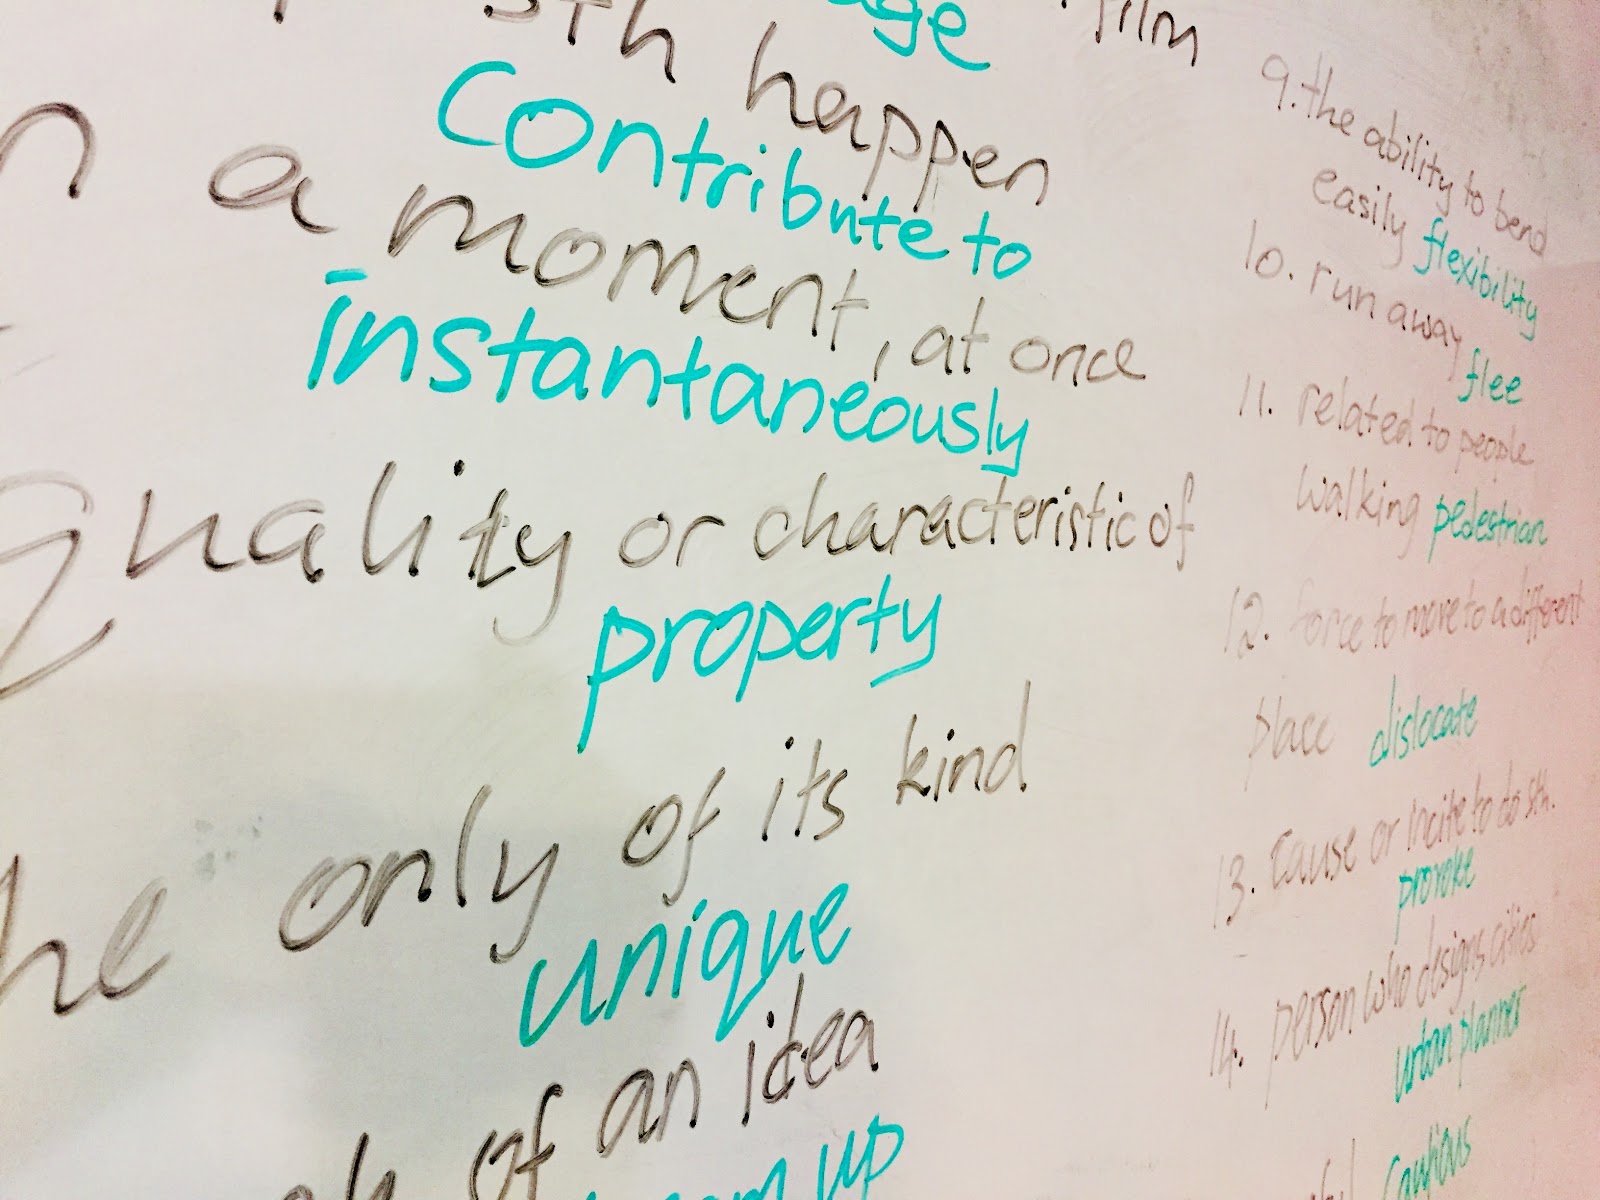 film
sth happen
contribute to
a moment, at once
instantaneously
quality or characteristic of
property
only of its kind
unique
of an idea
up
9. the ability to bend
easily flexibility
10. run away
flee
11. related to people
walking pedestrian
12. force to move to a different
place dislocate
13. cause or incite to do sth.
provoke
14. person who designs cities
urban planner
cautious